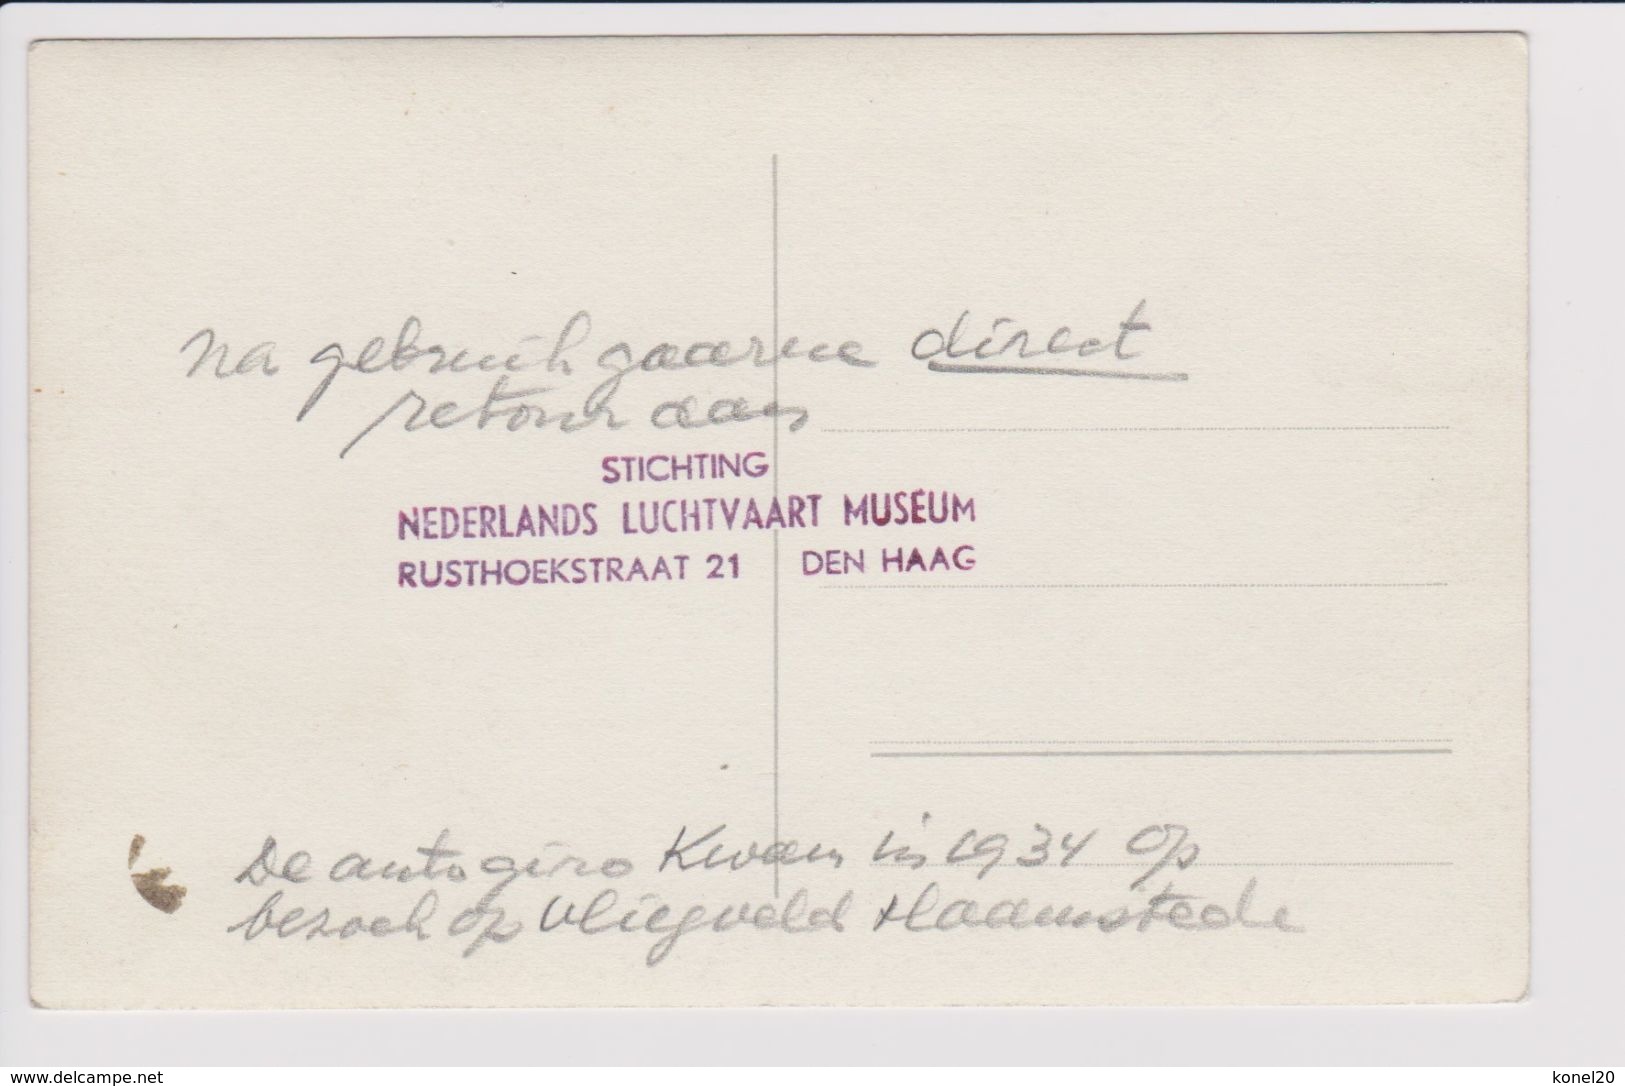 Na gebruik gaarne direct
retour aan
STICHTING
NEDERLANDS LUCHTVAART MUSEUM
RUSTHOEKSTRAAT 21 DEN HAAG
De autogiro Kwam in 1934 op
bezoek op vliegveld Haamstede
www.delcampe.net
konel20